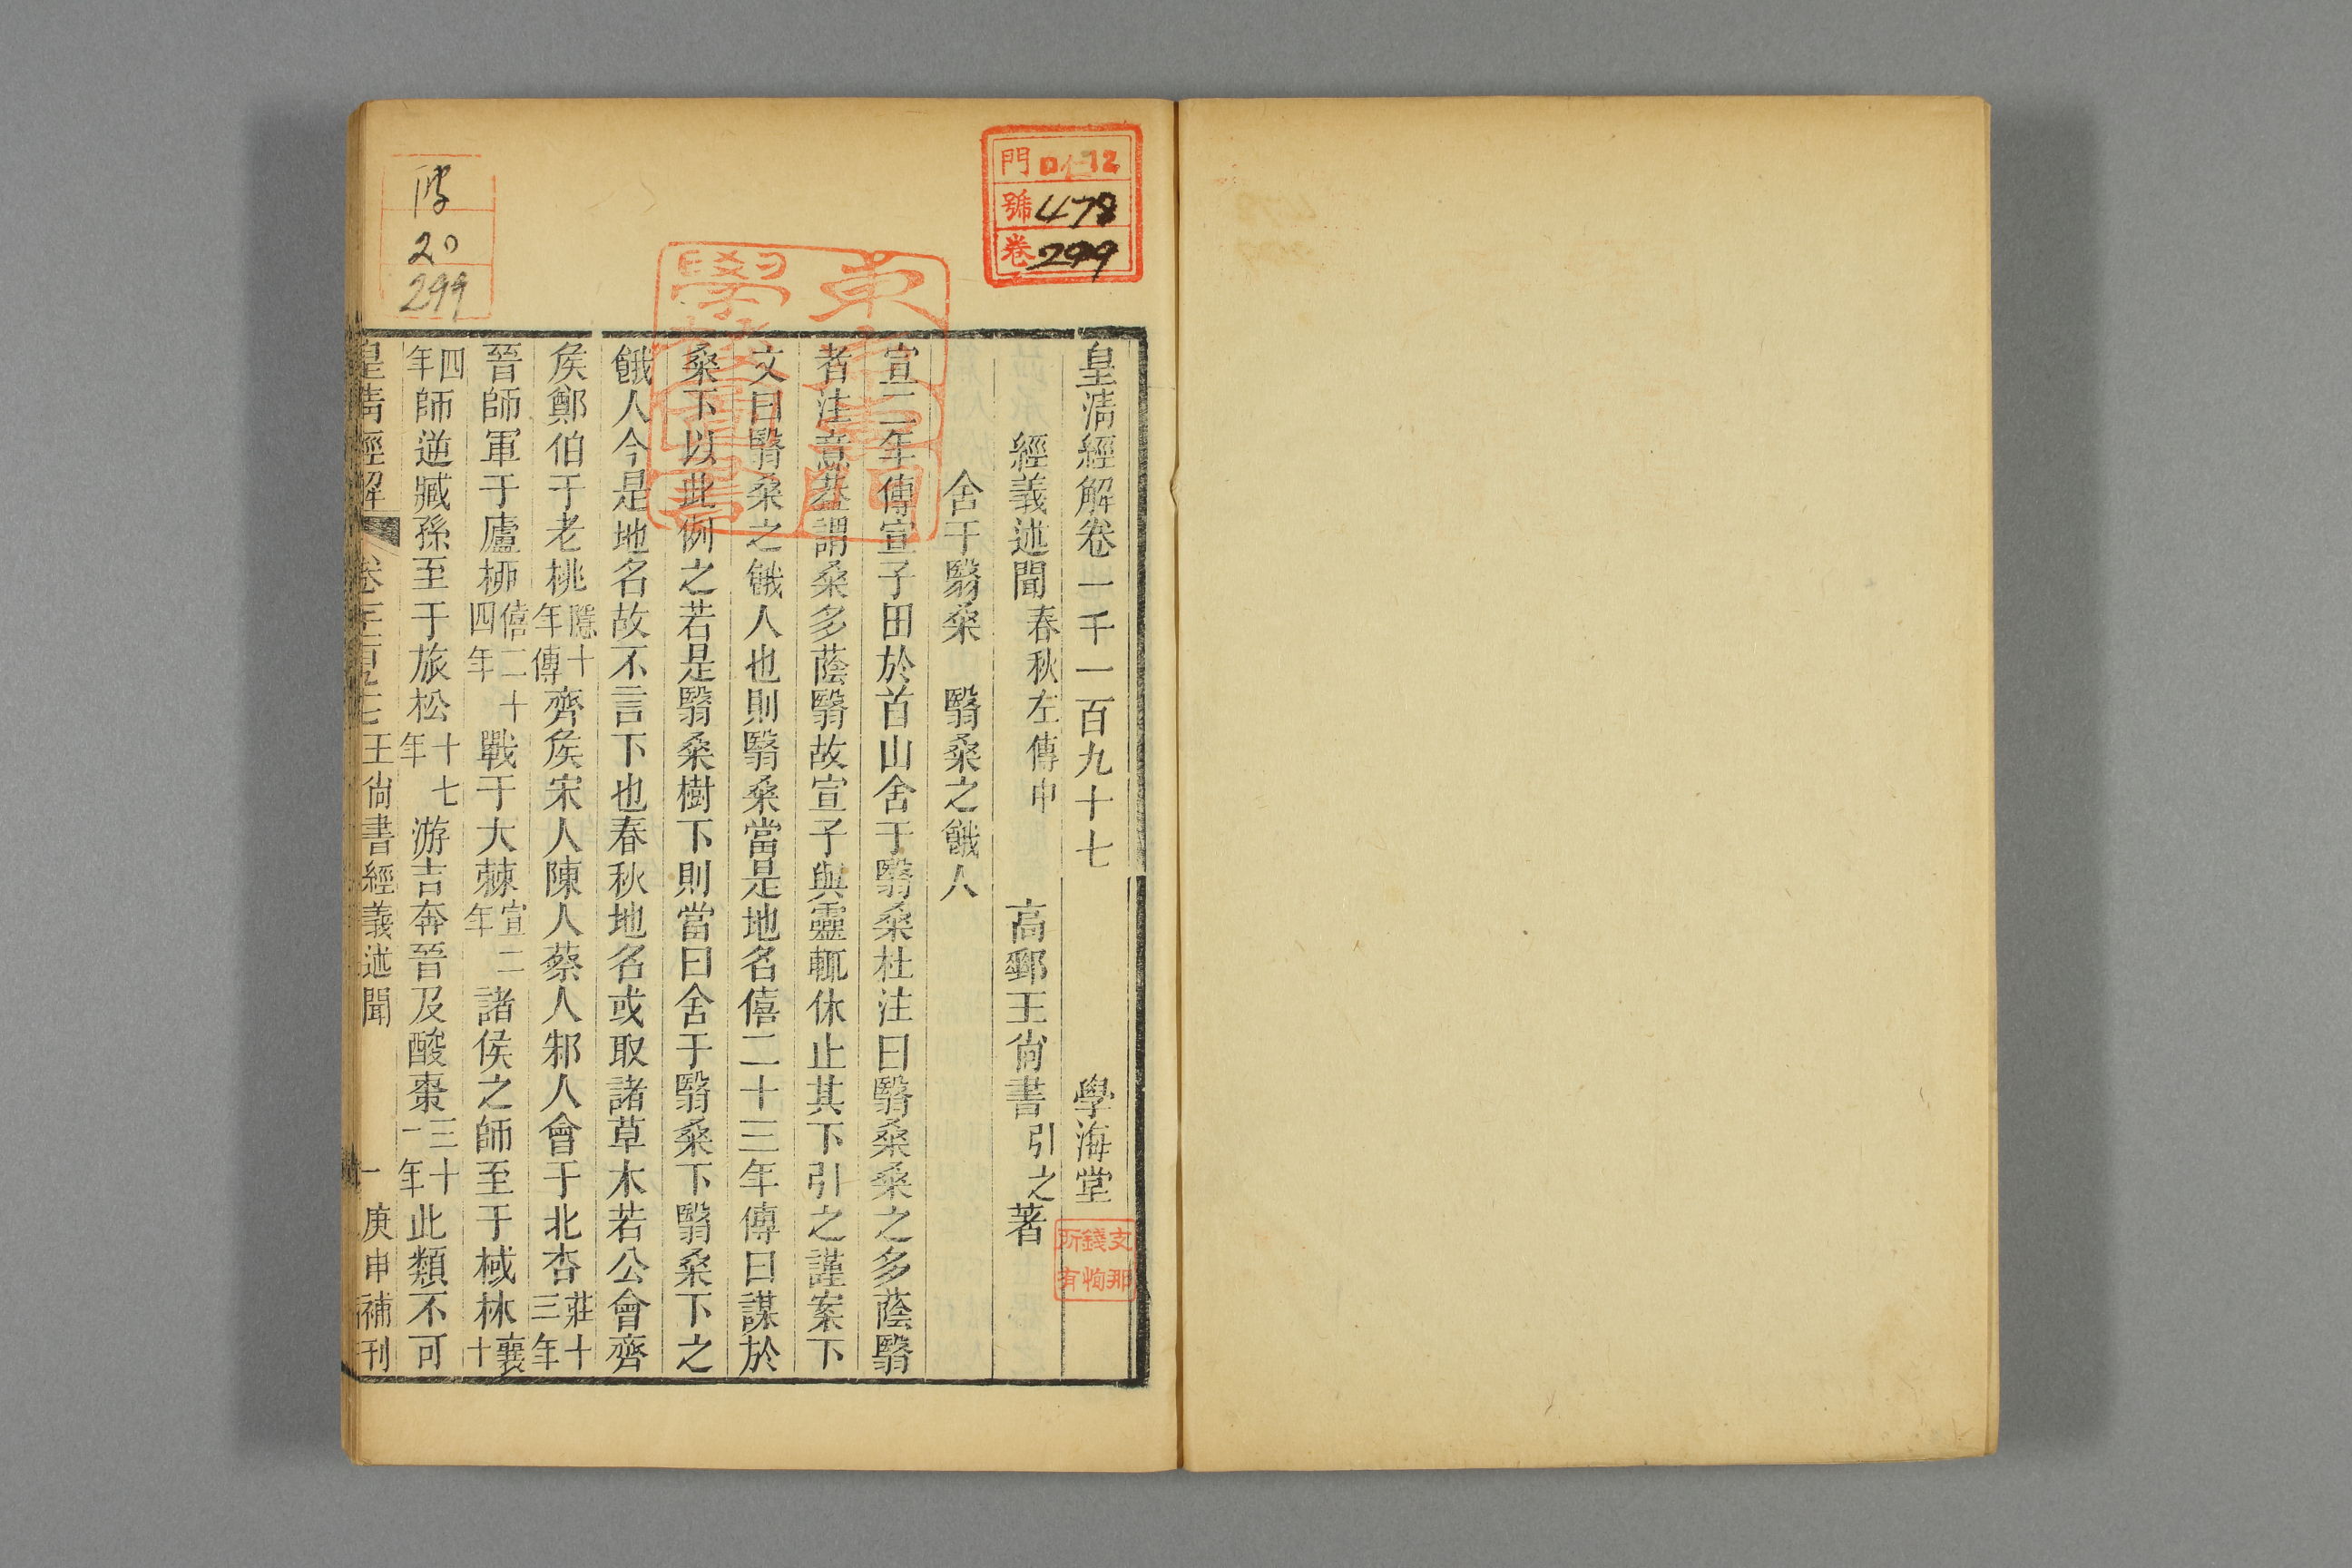 皇清經解卷一千一百九十七 學海堂
經義述聞 春秋左傳中 高郵王尙書引之著
舍于翳桑 翳桑之餓人
宣二年傳宣子田於首山舍于翳桑杜注曰翳桑桑之多蔭翳
者注意葢謂桑多蔭翳故宣子與靈輒休止其下引之謹案下
文曰翳桑之餓人也則翳桑當是地名僖二十三年傳曰謀於
桑下以此例之若是翳桑樹下則當曰舍于翳桑下翳桑下之
餓人今是地名故不言下也春秋地名或取諸草木若公會齊
矦鄭伯于老桃隱十年傳齊矦宋人陳人蔡人邾人會于北杏莊十三年
晉師軍于廬柳僖二十四年戰于大棘宣二年諸侯之師至于棫林襄十
四年師逆臧孫至于旅松十七年游吉奔晉及酸棗三十一年此類不可
皇清經解 卷一千一百九十七 王尙書經義述聞 一 庚申補刊
門 ロ仁12
號 478
卷 299
20
299
支那
錢恂
所有